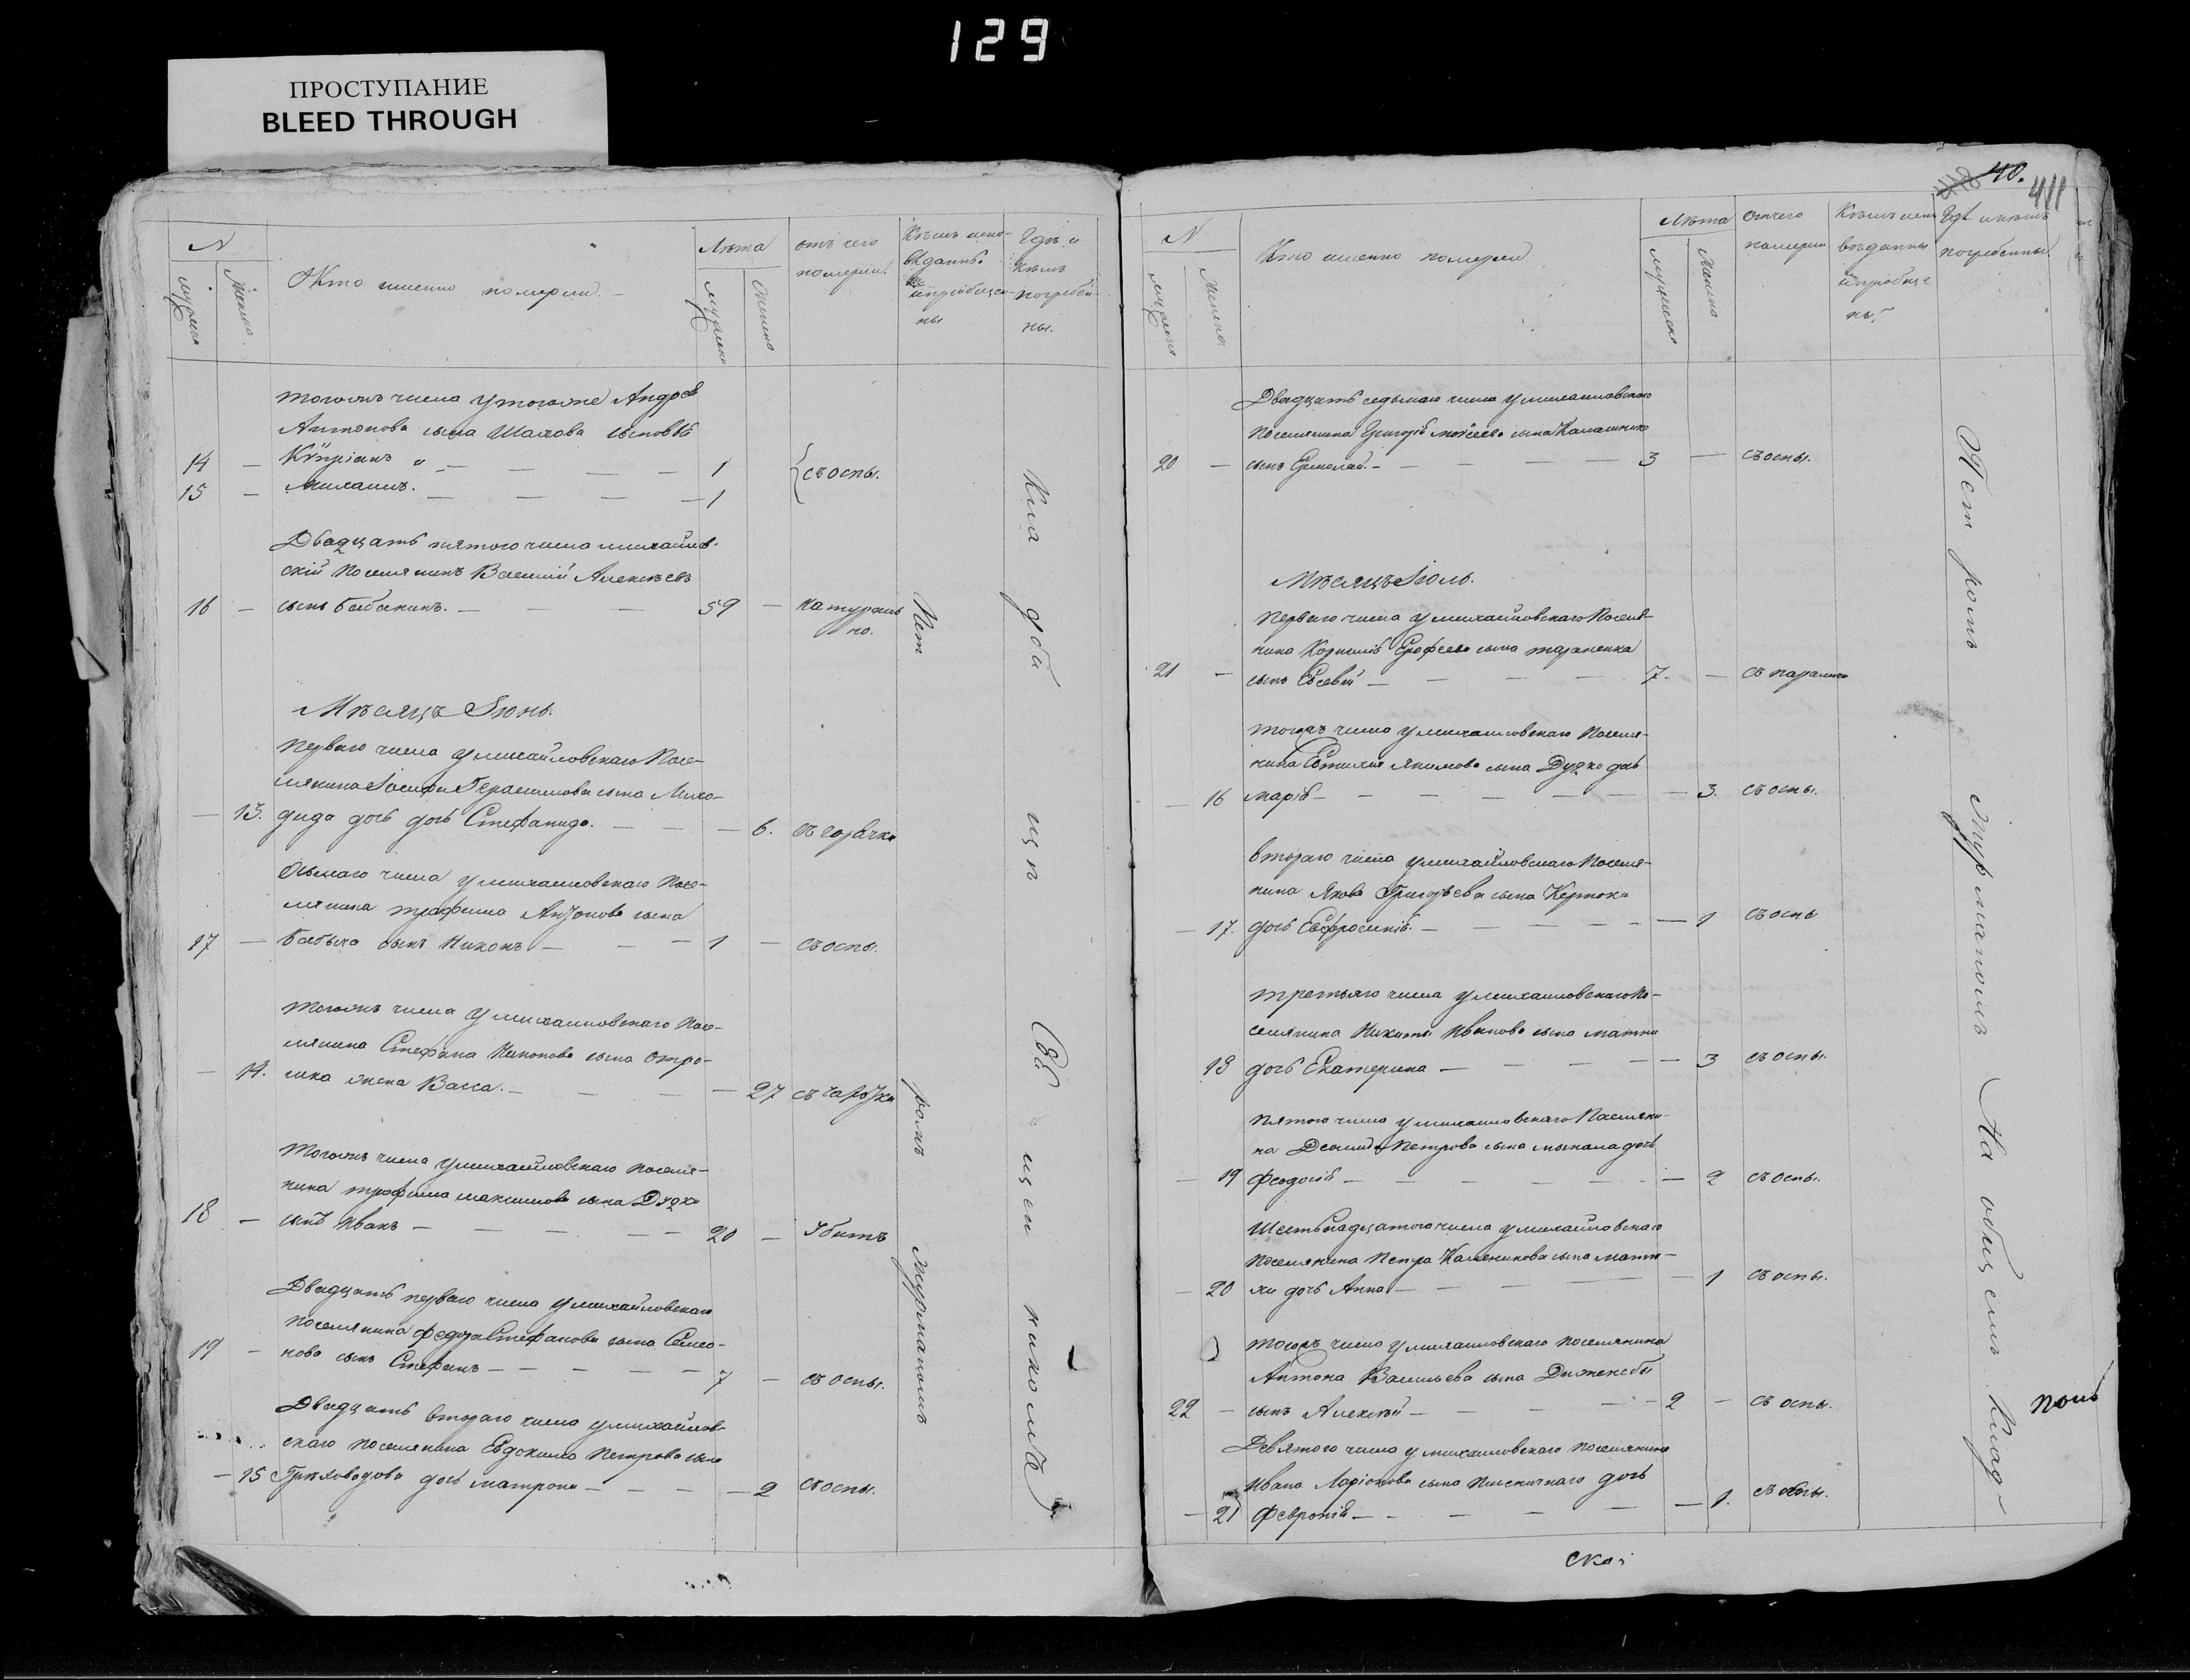 129
ПРОСТУПАНИЕ
BLEED THROUGH
N
мужеска
женска
Кто именно померли.
Лѣта
мужеска
женска
отъ чего
померли.
Кѣмъ испо-
вѣданы.
и пріобщен-
ны
Гдѣ и
кѣмъ
погребен-
ны.
тогожъ числа у тогоже Андрея
Антонова сына Шахова сыновья
14 — Кипріанъ — 1 съ оспы.
15 — Михаилъ. — 1
Двадцать пятого числа михайлов-
скій поселянинъ Василій Алексѣевъ
16 — сынъ Бабанинъ. — 59 — натураль
но.
Мѣсяцъ Іюнь.
Перваго числа у михайловскаго посе-
лянина Іосифа Герасимова сына Лихо-
— 13. дида дочь дочь Стефанида. — 6. съ горячки
Осьмаго числа у михайловскаго посе-
лянина трофима Антонова сына
17 — Бабыча сынъ Никонъ — 1 — съ оспы.
Тогожъ числа у михайловскаго посе-
лянина Стефана Никонова сына Отро-
— 14. шка жена Васса. — 27 съ горячки
Тогожъ числа у михайловскаго поселя-
нина трофима максимова сына Дудки
18 — сынъ Иванъ — 20 — Убитъ
Двадцать перваго числа у михайловскаго
поселянина Федора Стефанова сына Семе-
19 — нова сынъ Стефанъ — 7 — съ оспы.
Двадцать втораго числа у михайлов-
скаго поселянина Евдокима Петрова сына
— 15 Грѣховодова дочь матрона — 2 съ оспы.
Іерм
ромъ Журманомъ
Кла дби щѣ Об щем
40.
411
N
мужеска
женска
Кто именно померли
Лѣта
мужеска
женска
отчего
померли
Кѣмъ испо
вѣданны
и пріобще
ны.
Гдѣ и кѣмъ
погребенны
Двадцать седьмаго числа у михайловскаго
поселянина Григорія моисеева сына Калашника
20 — сынъ Ермолай. — 3 — съ оспы.
Мѣсяцъ Іюль.
Перваго числа у михайловскаго поселя-
нина Корнилія Ерофеева сына тараненка
21 — сынъ Евсевій — 7. — съ паралича
тогожъ числа у михайловскаго поселя-
нина Евтихія Якимова сына Дудко дочь
— 16 марія — 3. съ оспы.
втораго числа у михайловскаго поселя-
нина Якова Григорьева сына
— 17. дочь Евфросинія. — 1 съ оспы
третьяго числа у михайловскаго по-
селянина Никиты Иванова сына матни
18 дочь Екатерина — 3 съ оспы.
Пятого числа у михайловскаго поселяни-
на Демида Петрова сына дочь
— 19 Феодосія — 2 съ оспы.
Шестьнадцатого числа у михайловскаго
поселянина Петра Калиникова сына матю-
— 20 хи дочь Анна — 1 съ оспы.
тогожъ числа у михайловскаго поселянина
Антона Васильева сына
22 — сынъ Алексѣй — 2 — съ оспы.
Девятого числа у михайловскаго поселянина
Ивана Ларіонова сына Пшеничнаго дочь
— 21 Февронія — 1. съ оспы.
ромъ Журманомъ На общемъ Клад-